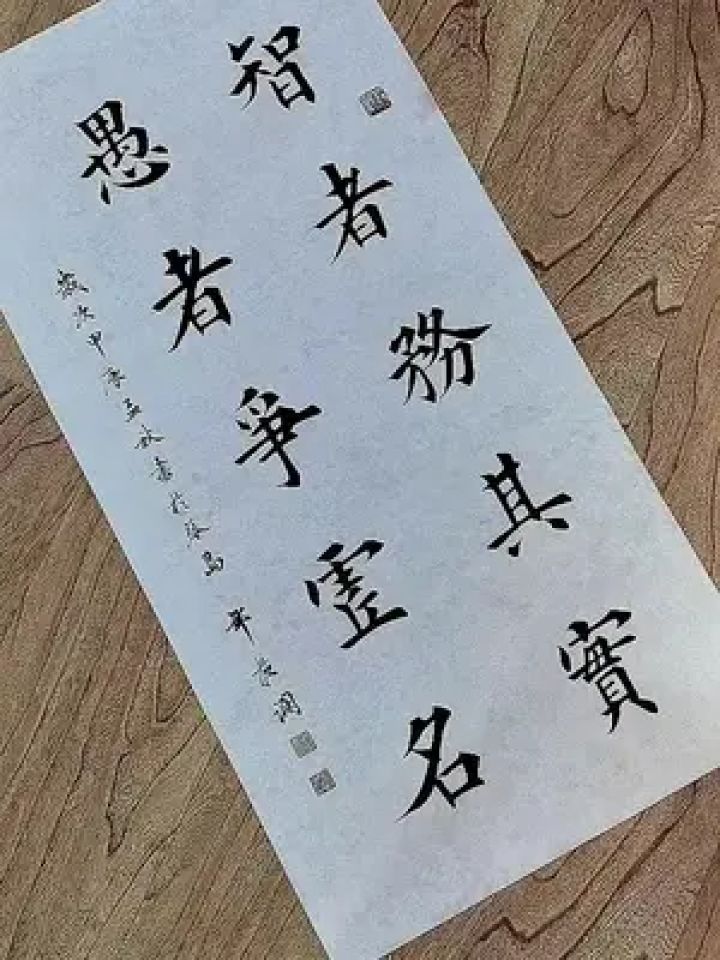 智者務其實
愚者爭虛名
歲次甲辰孟秋書於琴島